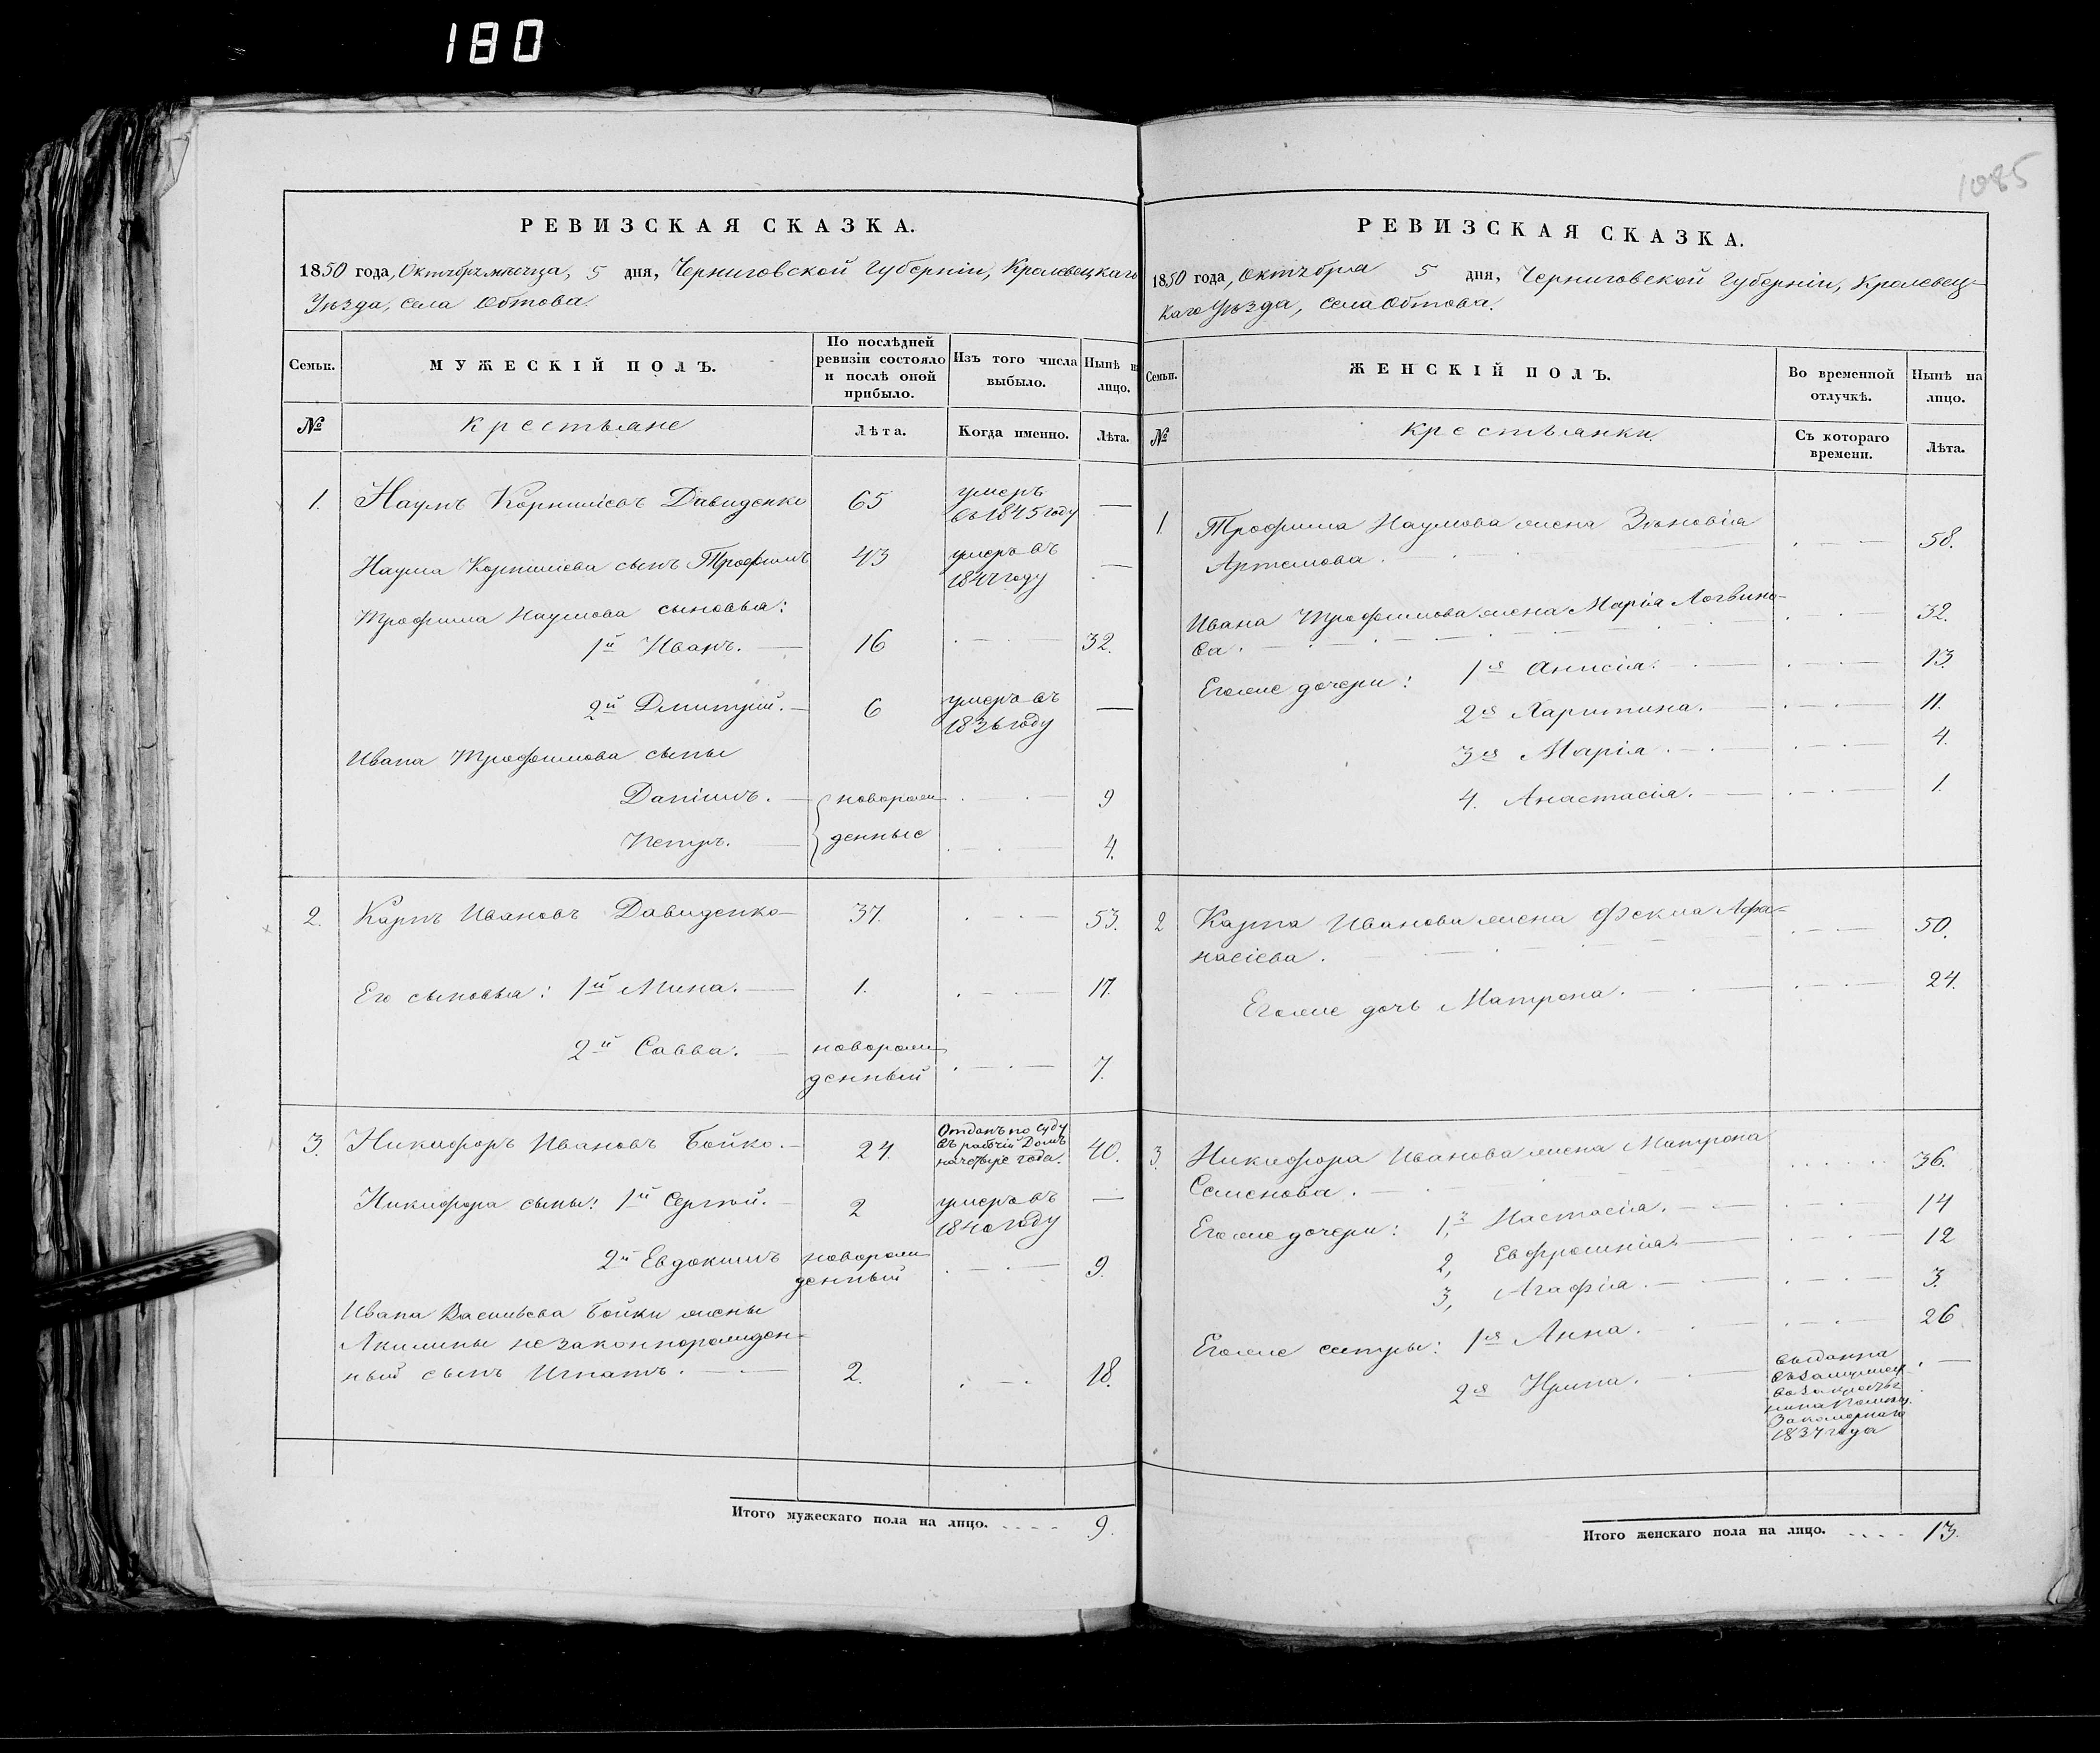 180
1085
РЕВИЗСКАЯ СКАЗКА.
1850 года, Октября месяца, 5 дня, Черниговской Губерніи, Кролевецкаго
Уѣзда, села Обтова.
Семьи. МУЖЕСКІЙ ПОЛЪ. По послѣдней ревизіи состояло и послѣ оной прибыло. Изъ того числа выбыло. Нынѣ на лицо.
№ Крестьяне Лѣта. Когда именно. Лѣта.
1. Наумъ Корнилієвъ Давиденко 65 умеръ въ 1845 году —
Наума Корнилієва сынъ Трофимъ 43 умеръ въ 1847 году —
Трофима Наумова сыновья:
1й Иванъ. — 16 32.
2й Дмитрій. — 6 умеръ въ 1836 году —
Ивана Трофимова сыны
Даніилъ. — новорож 9
Петръ. — денные 4.
2. Карпъ Ивановъ Давиденко 37. 53.
Его сыновья: 1й Мина. — 1. 17.
2й Савва. — новорож
денный 7.
3. Никифоръ Ивановъ Бойко. — 24. Отданъ по суду
въ рабочій Домъ
на четыре года. 40.
Никифора сыны: 1й Сергѣй. — 2 умеръ въ
1840 году —
2й Евдокимъ новорож
денный 9.
Ивана Васильева Бойки жены
Акилины незаконнорожден-
ный сынъ Игнатъ. — 2. 18.
Итого мужескаго пола на лицо. .... 9.
РЕВИЗСКАЯ СКАЗКА.
1850 года, Октября 5 дня, Черниговской Губерніи, Кролевец-
каго Уѣзда, села Обтова.
Семьи. ЖЕНСКІЙ ПОЛЪ. Во временной отлучкѣ. Нынѣ на лицо.
№ Крестьянки. Съ котораго времени. Лѣта.
1. Трофима Наумова жена Зѣновія
Артемова. 58.
Ивана Трофимова жена Марія Логвино-
ва. 32.
Егоже дочери: 1я Анисія. 13
2я Харитина. 11.
3я Марія. 4.
4. Анастасія. 1.
2 Карпа Иванова жена Фекла Афа-
насієва. 50.
Егоже дочь Матрона. 24.
3. Никифора Иванова жена Матрона
Семенова. 36.
Егоже дочери: 1, Настасія. 14
2, Евфросинія. 12
3, Агафія. 3.
Егоже сестры: 1я Анна. 26
2я Ирина. выданна
въ замужест
во за
1837 года —
Итого женскаго пола на лицо. .... 13.